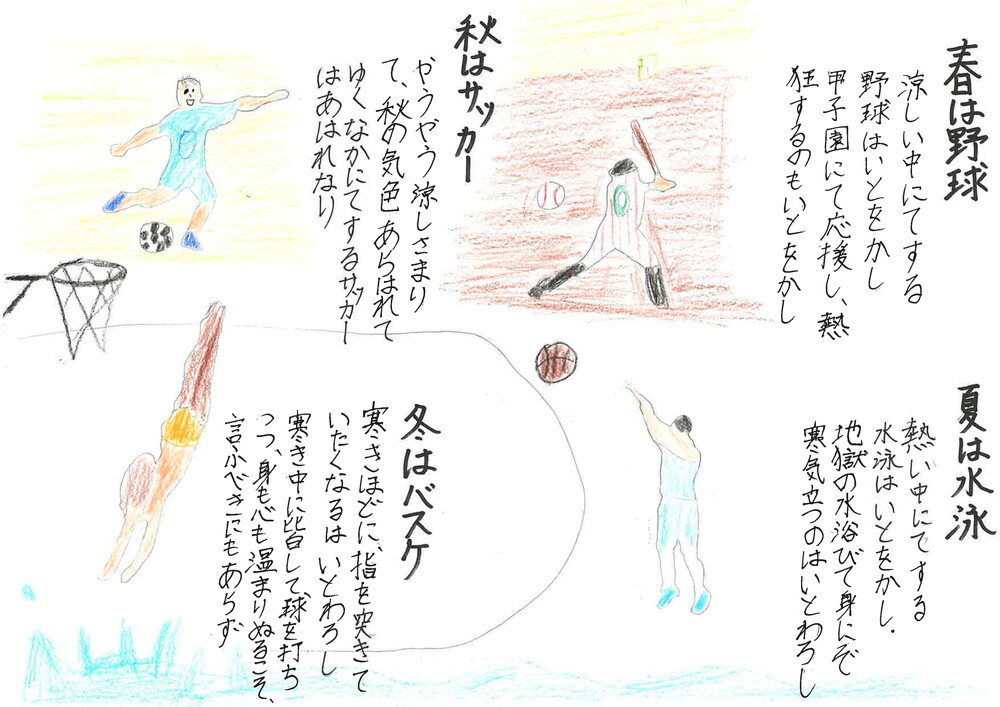 春は野球
涼しい中にてする
野球はいとをかし
甲子園にて応援し、熱
狂するのもいとをかし
夏は水泳
熱い中にてする
水泳はいとをかし.
地獄の水浴びて身にぞ
寒気立つのはいとわろし
秋はサッカー
やうやう涼しさまり
て、秋の気色あらはれて
ゆくなかにてするサッカー
はあはれなり
冬はバスケ
寒きほどに、指を突きて
いたくなるは いとわろし
寒き中に皆して、球を打ち
つつ、身も心も温まりぬるこそ、
言ふべきにもあらず